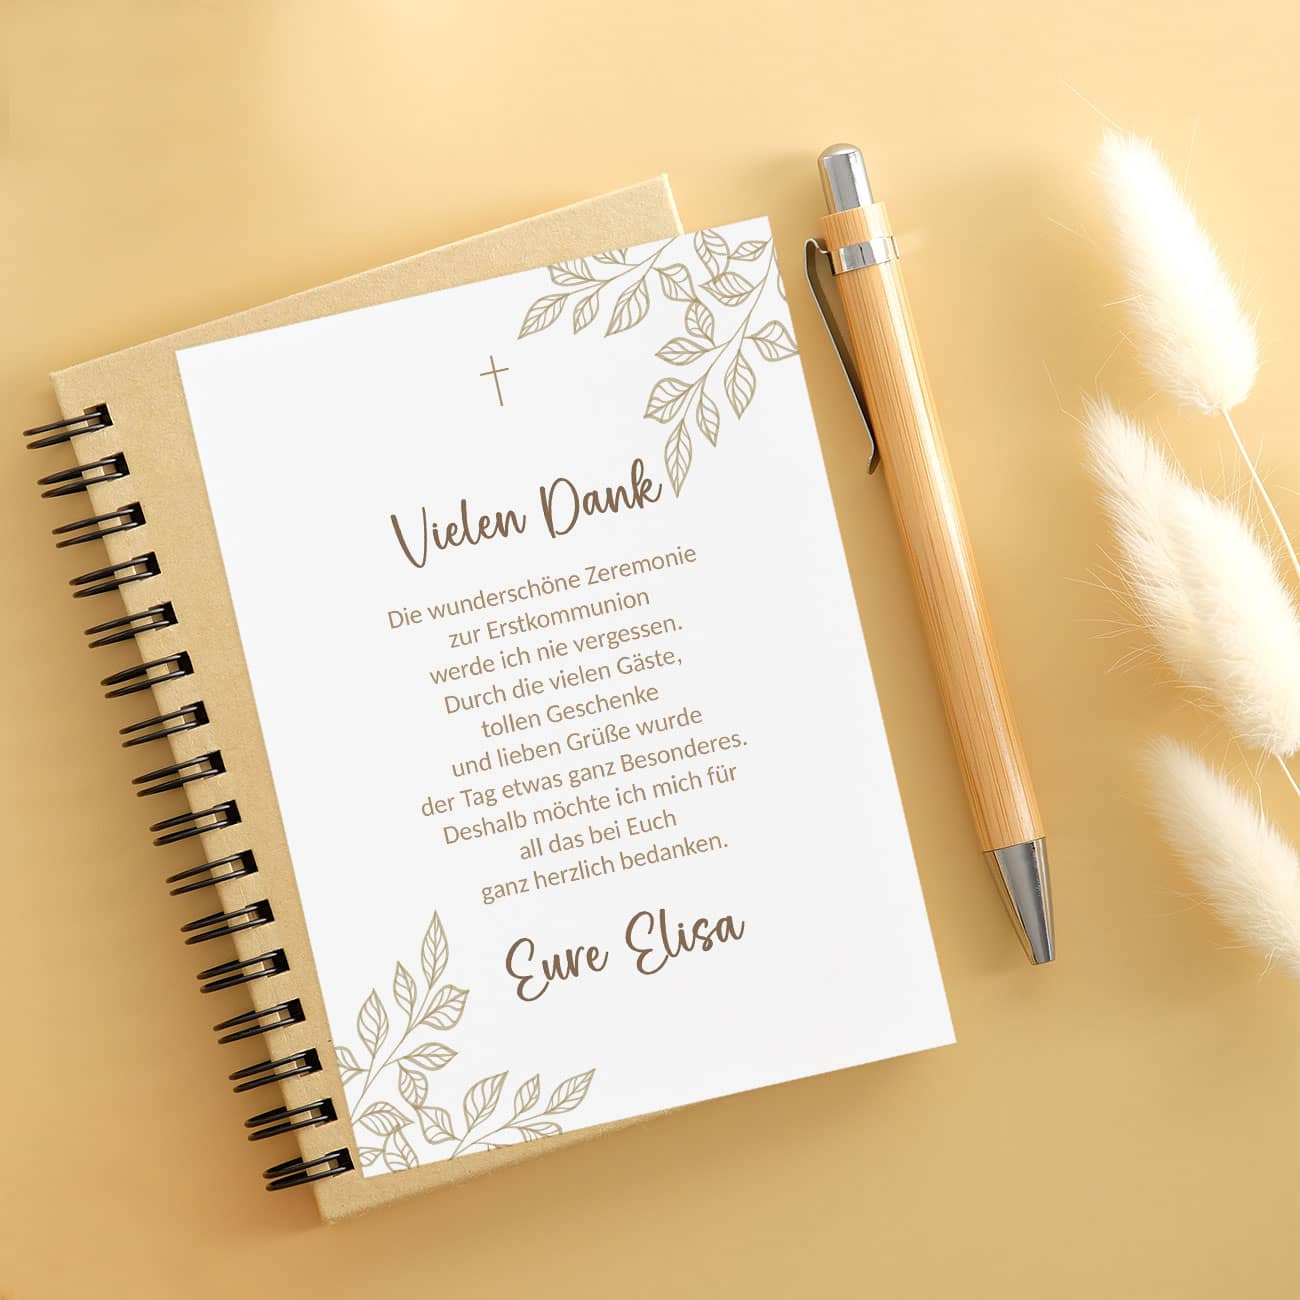 Vielen Dank
Die wunderschöne Zeremonie
zur Erstkommunion
werde ich nie vergessen.
Durch die vielen Gäste,
tollen Geschenke
und lieben Grüße wurde
der Tag etwas ganz Besonderes.
Deshalb möchte ich mich für
all das bei Euch
ganz herzlich bedanken.
Eure Elisa